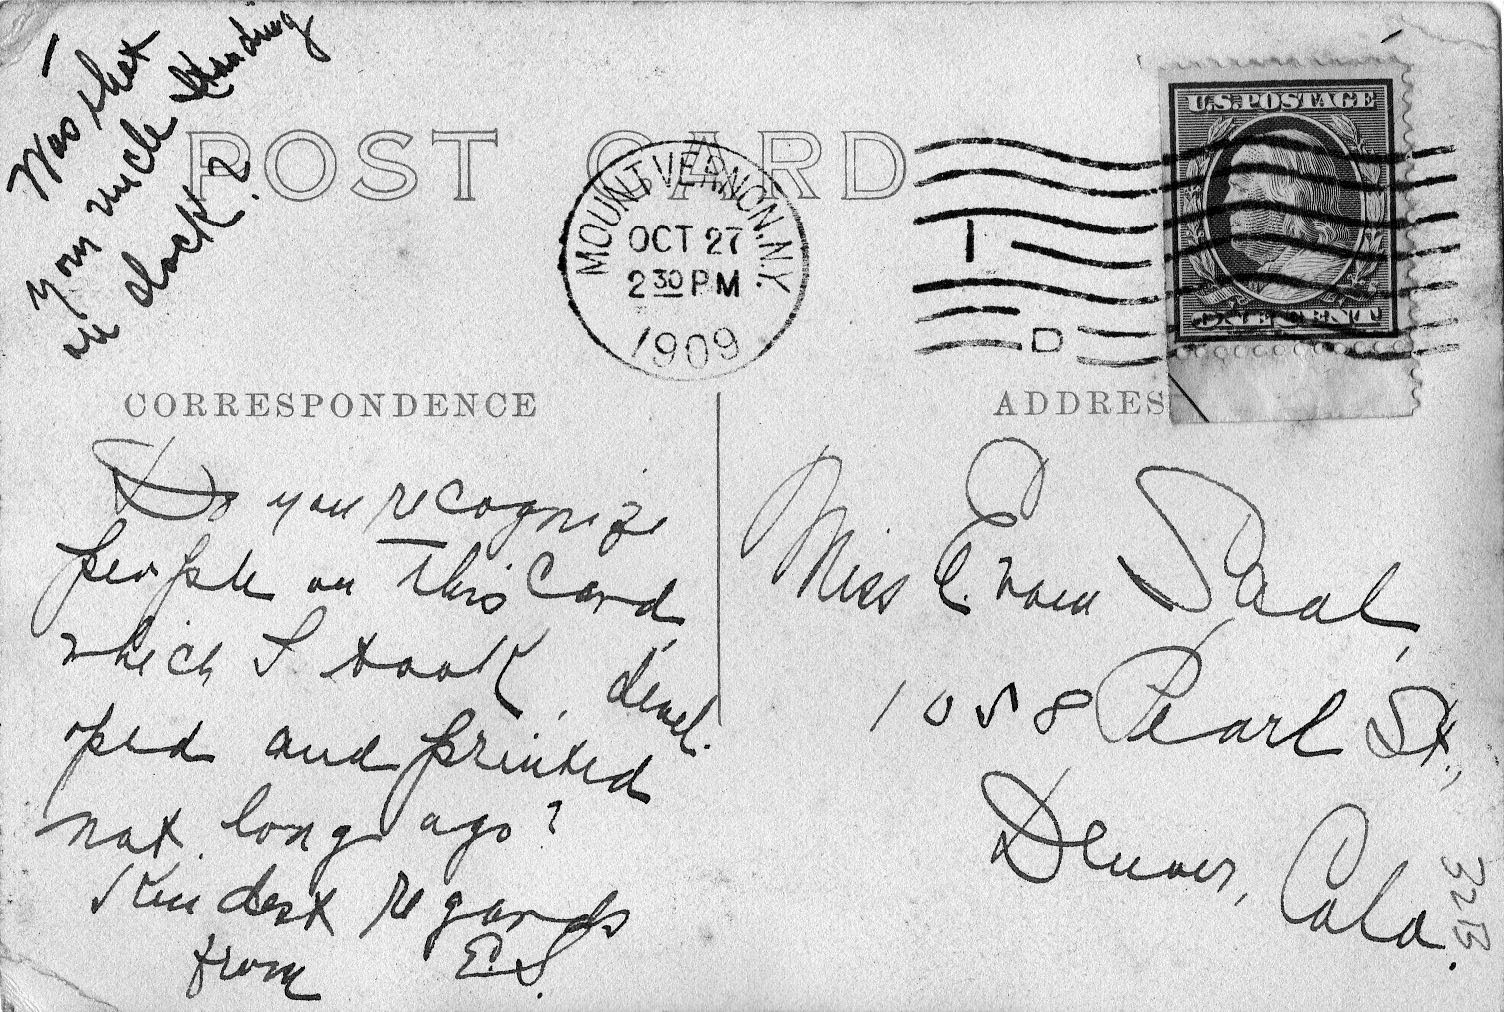 Was that
your uncle standing
on dock?
POST CARD
MOUNT VERNON, N.Y.
OCT 27
2 30 PM
1909
1
D
U.S. POSTAGE
ONE CENT
CORRESPONDENCE
ADDRES
Do you recognize
people on this card,
which I took, devel-
oped and printed
not long ago?
Kindest regards
from E.S.
Miss E. Saal,
1058 Pearl St.,
Denver, Colo.
32B